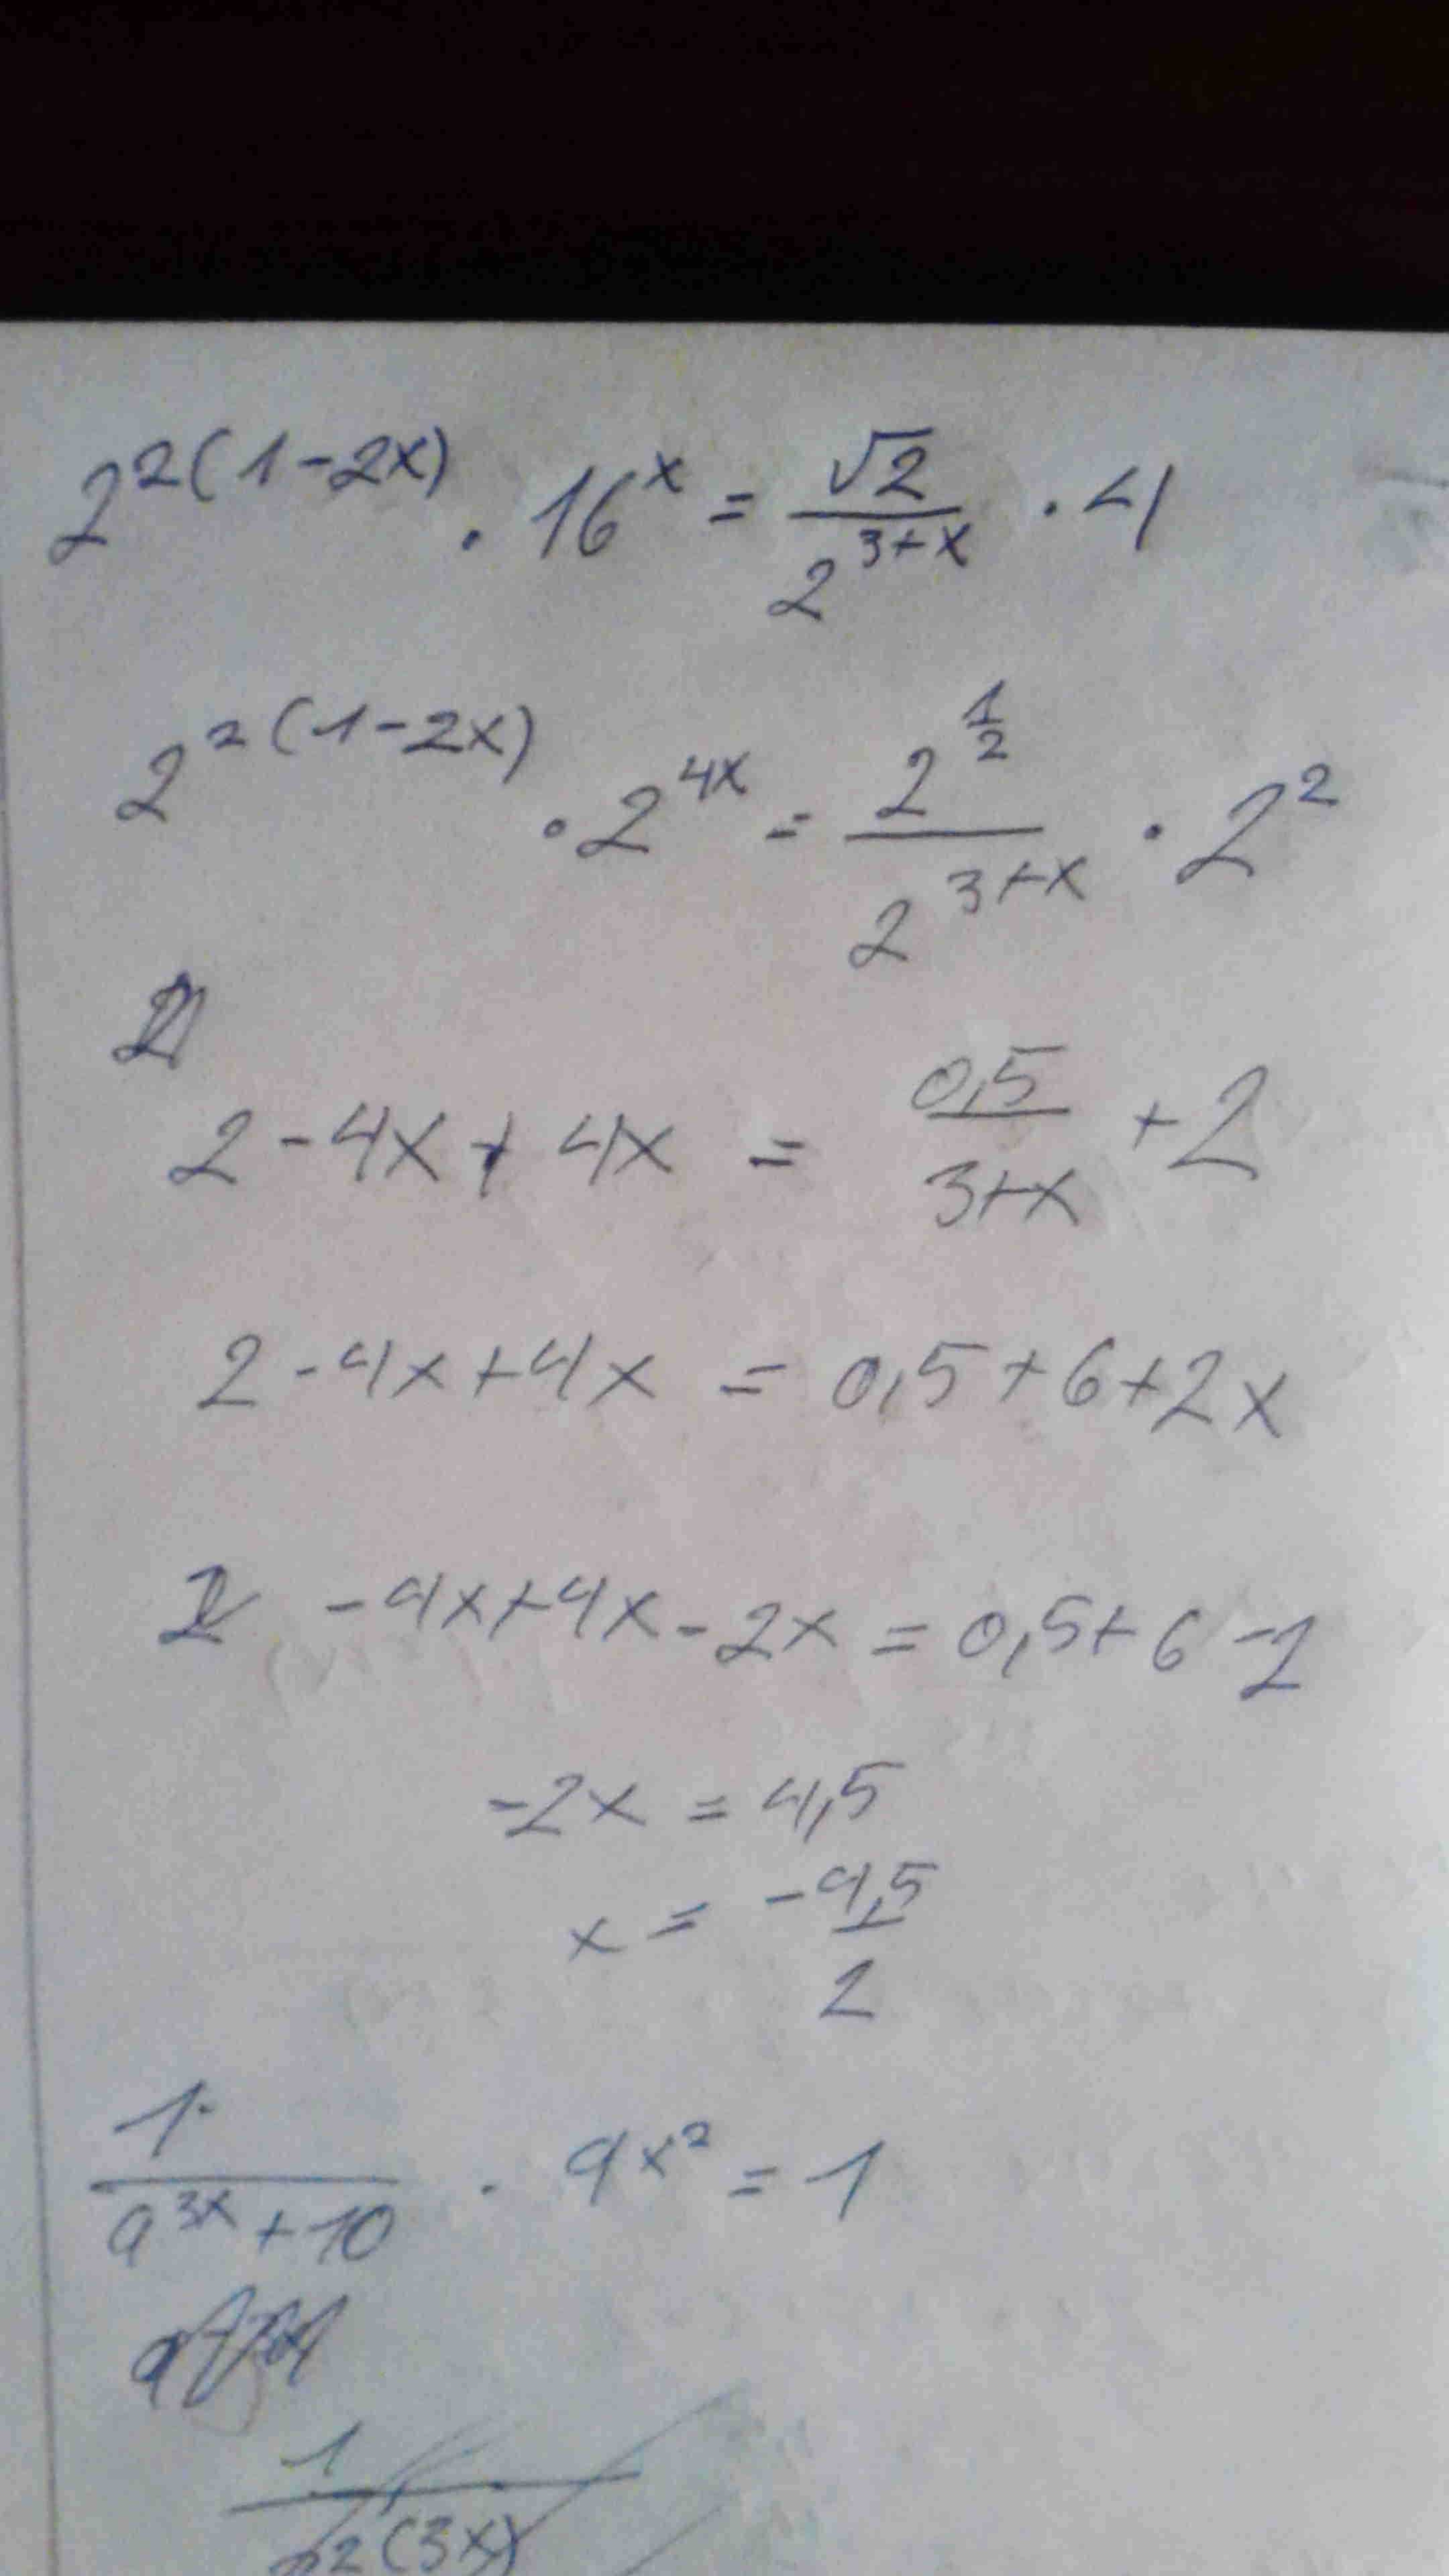 2^{2(1-2x)} · 16^x = \frac{√2}{2^{3+x}} · 4
2^{2(1-2x)} · 2^{4x} = \frac{2^{\frac{1}{2}}}{2^{3+x}} · 2^2
2 - 4x + 4x = \frac{0,5}{3+x} + 2
2 - 4x + 4x = 0,5 + 6 + 2x
- 4x + 4x - 2x = 0,5 + 6 - 2
-2x = 4,5
x = \frac{-4,5}{2}
\frac{1}{a^{3x} + 10} · a^{x^2} = 1
\frac{1}{2(3x)}